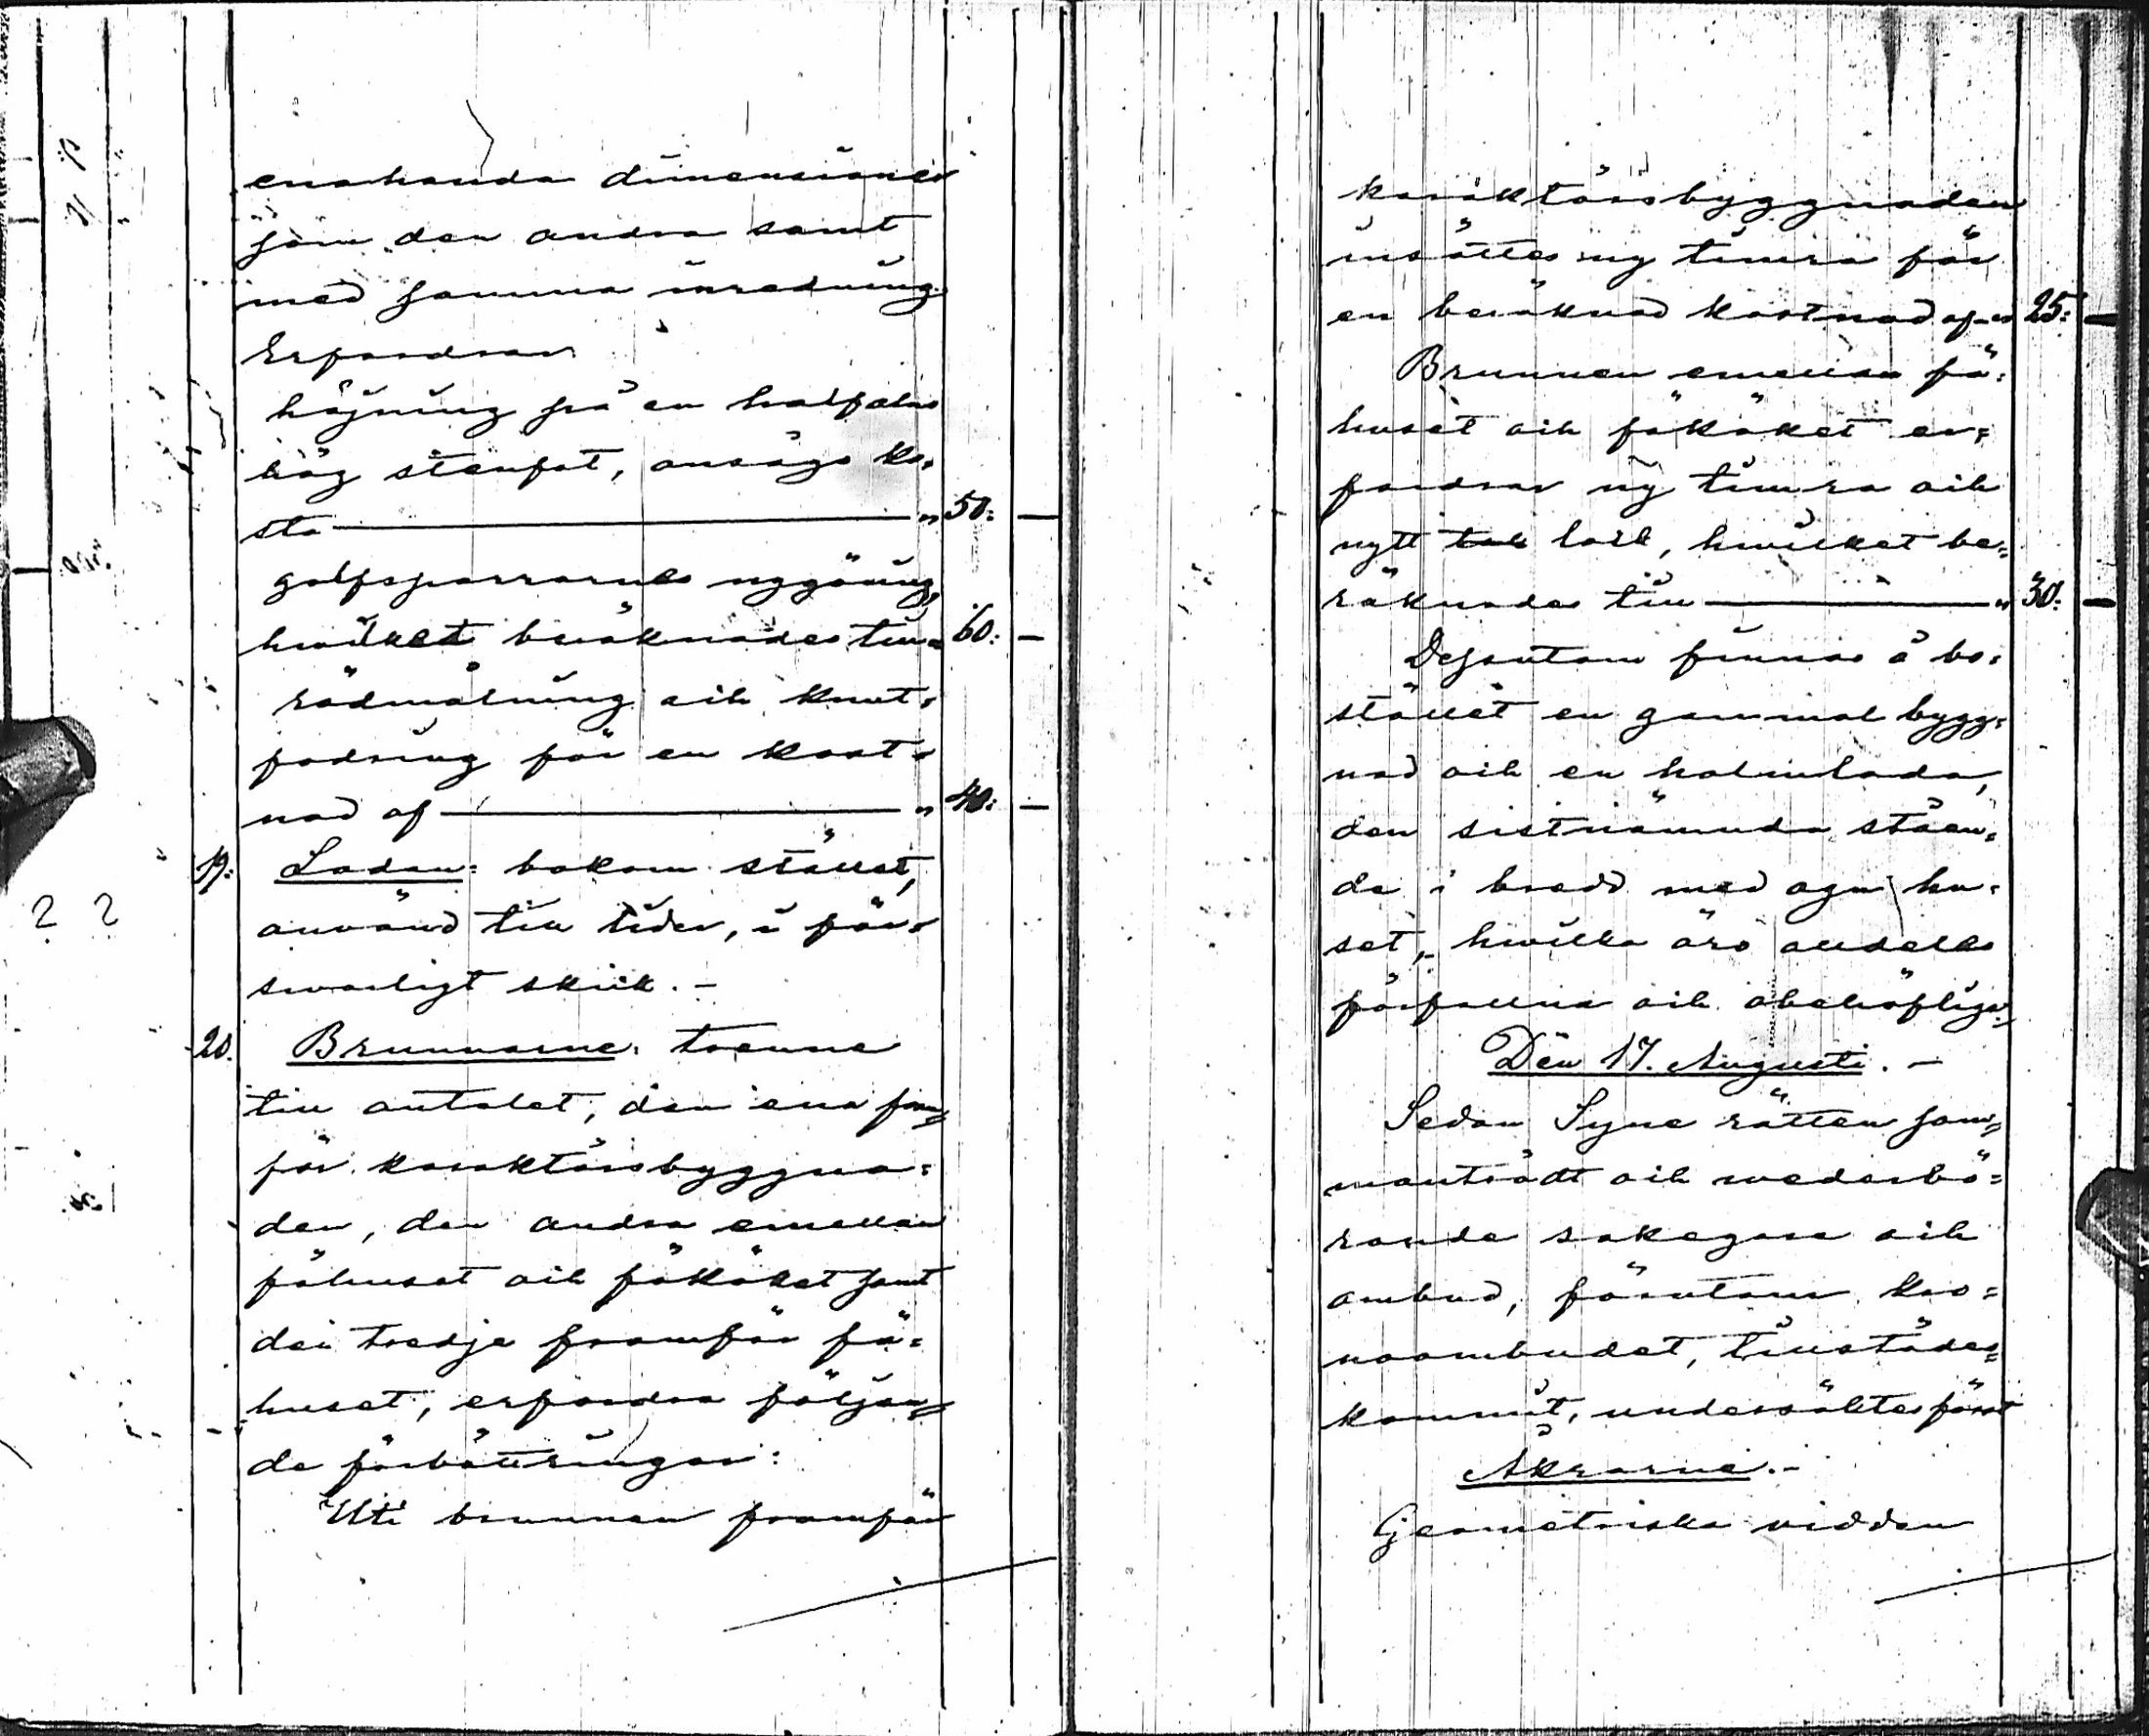 enahanda dimensioner
som den andra samt
med samma inredning.
Erfordrar
höjning på en half aln
hög stenfot, ansågs ko=
sta — " 50: —
golfsparrarnes nygöring,
hwilket beräknades till " 60: —
rödmålning och knut=
fodring för en kost=
nad af — " 40: —
19: Ladan: bakom stallet,
använd till lider, i för=
swarligt skick. –
20. Brunnarne: trenne
till antalet, den ena fram=
för karaktärsbyggna=
den, den andra emellan
fähuset och fäköket samt
den tredje framför fä=
huset, erfordra följan=
de förbättringar:
Uti brunnen framför
karaktärsbyggnaden
insättes ny timra för
en beräknad kostnad af " 25: —
Brunnen emellan fä=
huset och fäköket er=
fordrar ny timra och
nytt tak lock, hwilket be=
räknades till — " 30: —
Dessutom finnas å bo=
stället en gammal bygg=
nad och en halmlada,
den sistnämnda ståen=
de i bredd med agnhu=
set, hwilka äro alldeles
förfallna och obehöfliga.
Den 17. Augusti. –
Sedan Syne rätten sam=
manträdt och wederbö=
rande sakegare och
ombud, förutom kro=
noombudet, tillstädes=
kommit, undersöktes först
Åkrarne. –
Geometriska vidden